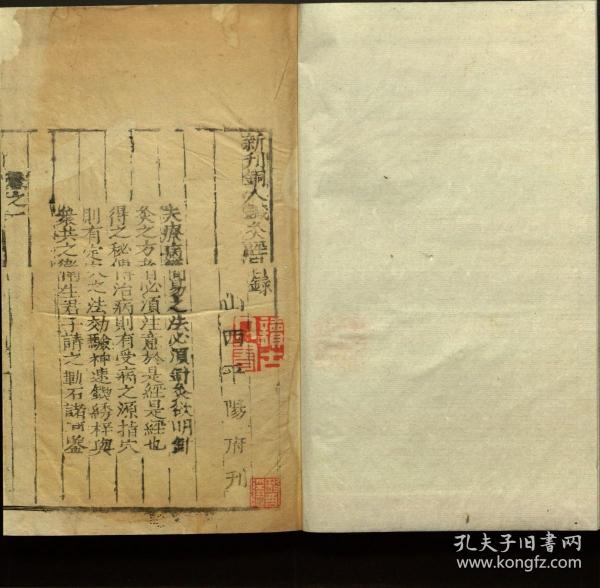 新刊銅人針灸經目錄
山西平陽府刊
夫療病簡易之法必須針灸欲明針
灸之方者必須注意於是經是經也
得之秘傳治病則有受病之源指穴
則有定穴之法効驗神速鋟綉梓與
衆共之衛生君子請之動石諸可鑒
卷之一
孔夫子旧书网
www.kongfz.com